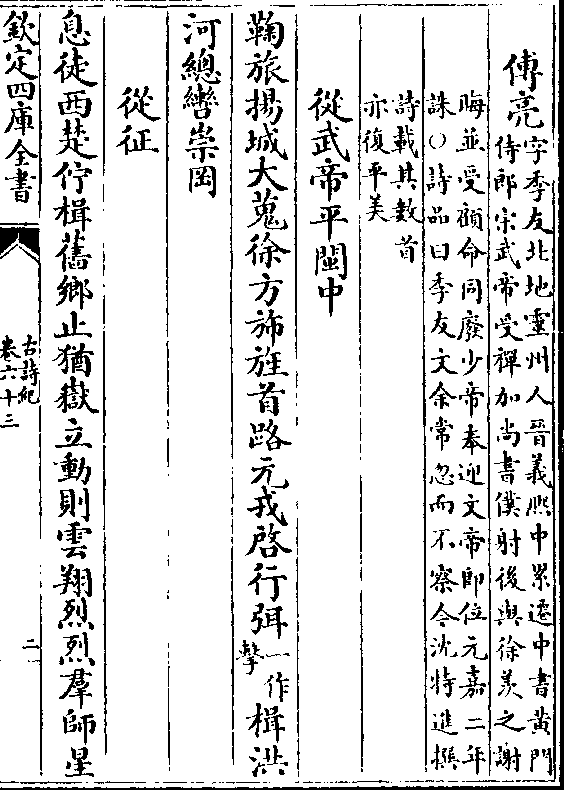 傅亮字季友北地靈州人晉義熙中累遷中書黄門
侍郎宋武帝受禪加尚書僕射後與徐羨之謝
晦並受顧命同廢少帝奉迎文帝即位元嘉二年
誅○詩品曰季友文余常忽而不察今沈特進撰
詩載其數首
亦復平美
從武帝平閩中
鞠旅揚城大蒐徐方斾旌首路元戎啓行弭一作擊楫洪
河總轡崇岡
從征
息徒西楚佇楫舊鄉止猶嶽立動則雲翔烈烈羣師星
欽定四庫全書
古詩紀
卷六十三
二